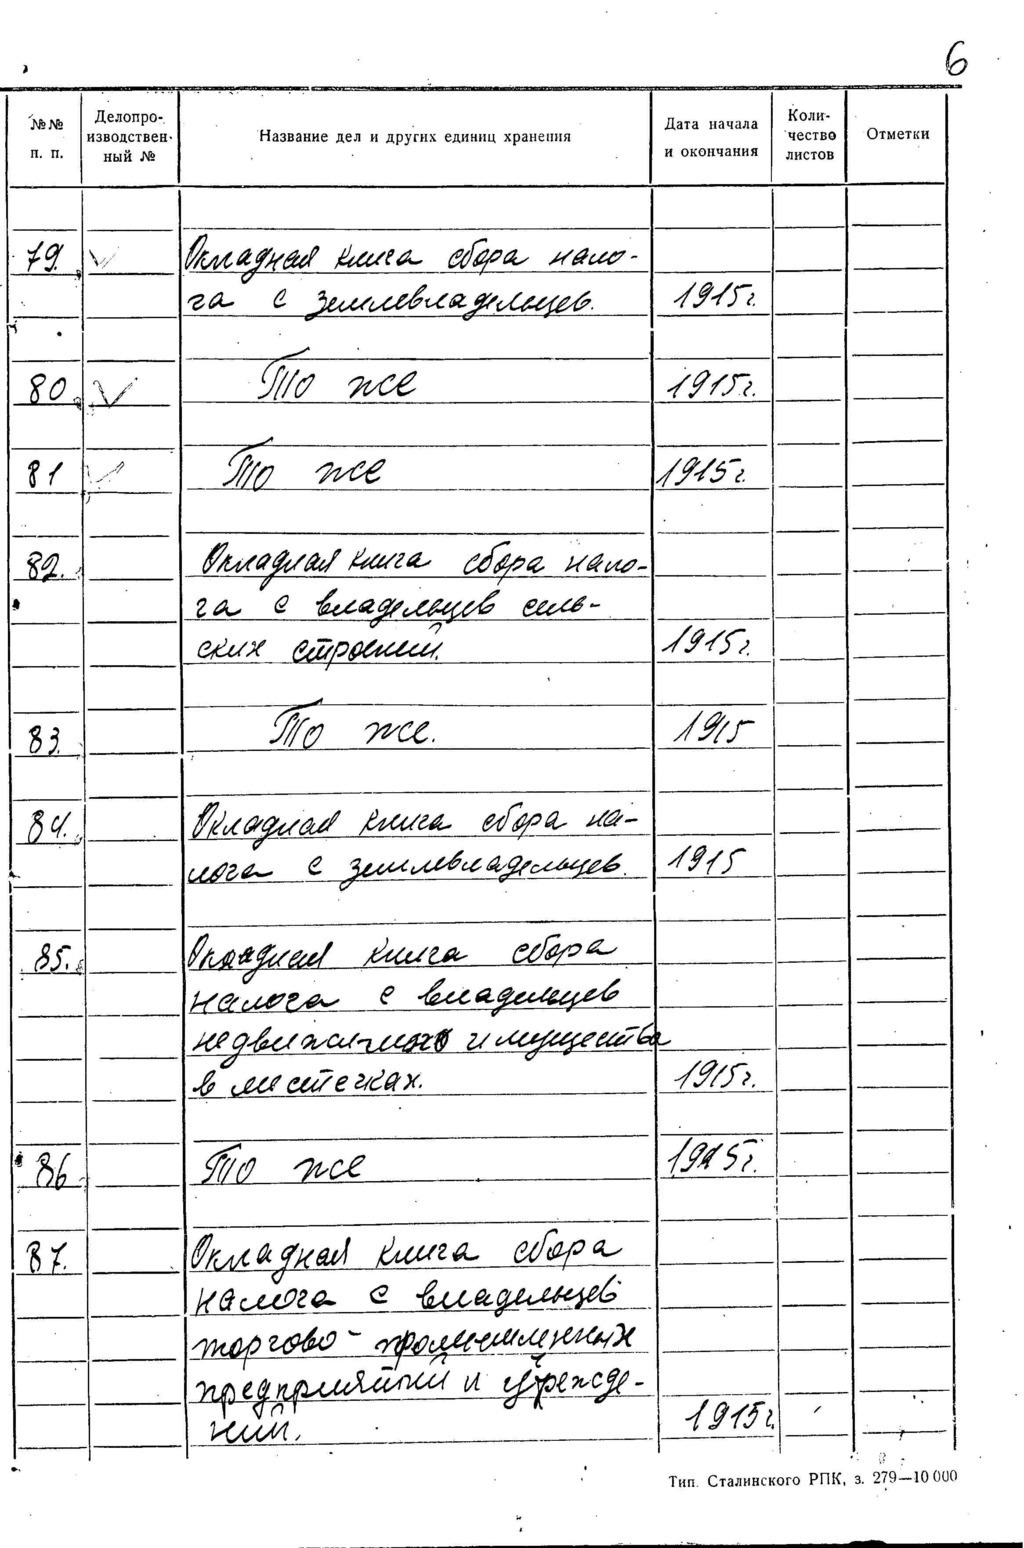 6
№№ п. п.
Делопро-
изводствен-
ный №
Название дел и других единиц хранения
Дата начала
и окончания
Коли-
чество
листов
Отметки
79. Окладная книга сбора нало-
га с землевладельцев. 1915г.
80. То же 1915г.
81 То же 1915г.
82. Окладная книга сбора нало-
га с владельцев сель-
ских строений. 1915г.
83. То же. 1915
84. Окладная книга сбора на-
лога с землевладельцев. 1915
85. Окладная книга сбора
налога с владельцев
недвижимого имущества
в местечках. 1915г.
86 То же 1915г.
87. Окладная книга сбора
налога с владельцев
торгово-промышленных
предприятий и учрежде-
ний. 1915г.
Тип. Сталинского РПК, з. 279—10 000